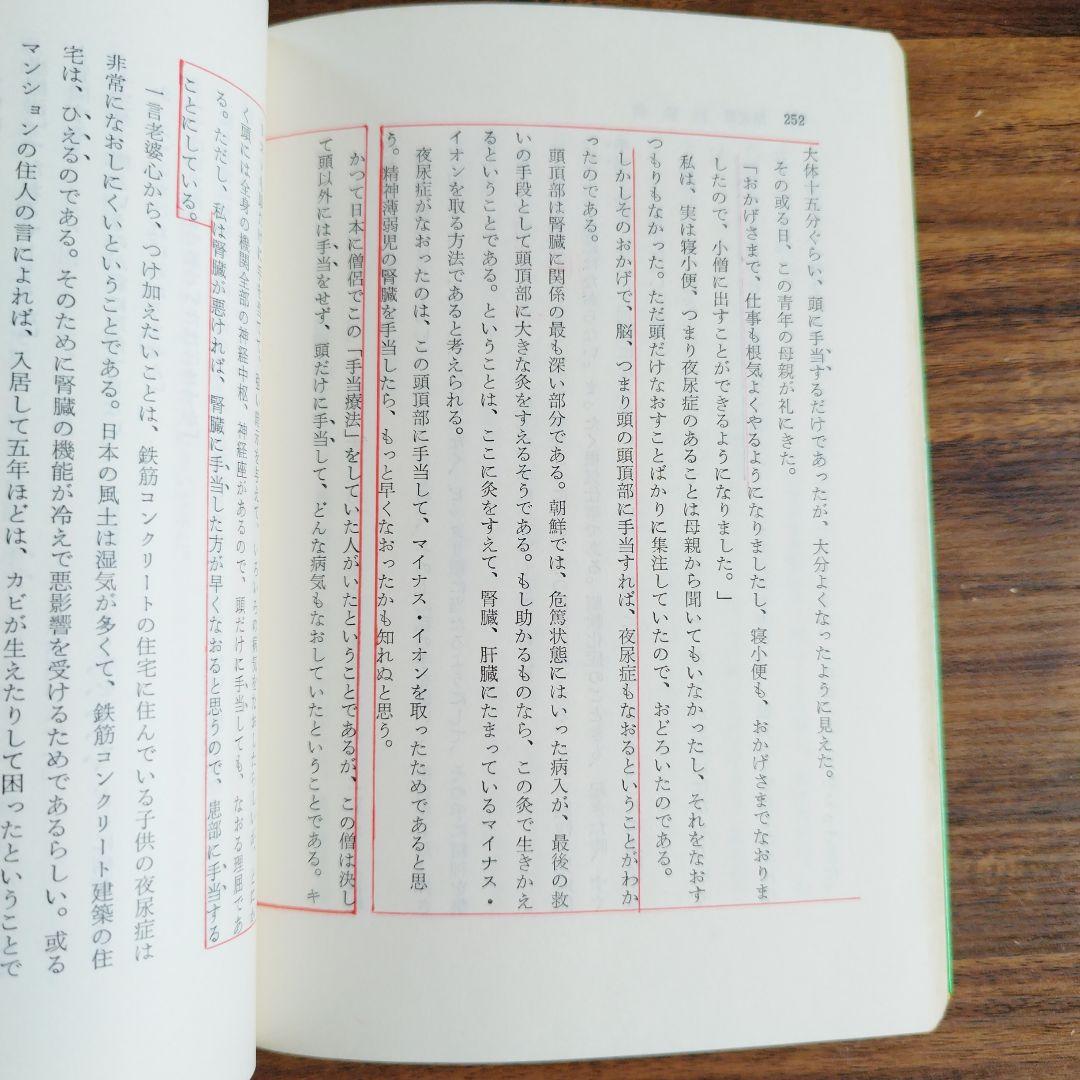 252
大体十五分ぐらい、頭に手当するだけであったが、大分よくなったように見えた。
その或る日、この青年の母親が礼にきた。
「おかげさまで、仕事も根気よくやるようになりましたし、寝小便も、おかげさまでなおりま
したので、小僧に出すことができるようになりました。」
私は、実は寝小便、つまり夜尿症のあることは母親から聞いてもいなかったし、それをなおす
つもりもなかった。ただ頭だけなおすことばかりに集注していたので、おどろいたのである。
しかしそのおかげで、脳、つまり頭の頭頂部に手当すれば、夜尿症もなおるということがわか
ったのである。
頭頂部は腎臓に関係の最も深い部分である。朝鮮では、危篤状態にはいった病人が、最後の救
いの手段として頭頂部に大きな灸をすえるそうである。もし助かるものなら、この灸で生きかえ
るということである。ということは、ここに灸をすえて、腎臓、肝臓にたまっているマイナス・
イオンを取る方法であると考えられる。
夜尿症がなおったのは、この頭頂部に手当して、マイナス・イオンを取ったためであると思
う。精神薄弱児の腎臓を手当したら、もっと早くなおったかも知れぬと思う。
かつて日本に僧侶でこの「手当療法」をしていた人がいたということであるが、この僧は決し
て頭以外には手当をせず、頭だけに手当して、どんな病気もなおしていたということである。キ
く頭には全身の機関全部の神経中枢、神経座があるので、頭だけに手当しても、なおる理屈であ
る。ただし、私は腎臓が悪ければ、腎臓に手当した方が早くなおると思うので、患部に手当する
ことにしている。
一言老婆心から、つけ加えたいことは、鉄筋コンクリートの住宅に住んでいる子供の夜尿症は
非常になおしにくいということである。日本の風土は湿気が多くて、鉄筋コンクリート建築の住
宅は、ひえるのである。そのために腎臓の機能が冷えで悪影響を受けるためであるらしい。或る
マンションの住人の言によれば、入居して五年ほどは、カビが生えたりして困ったということで